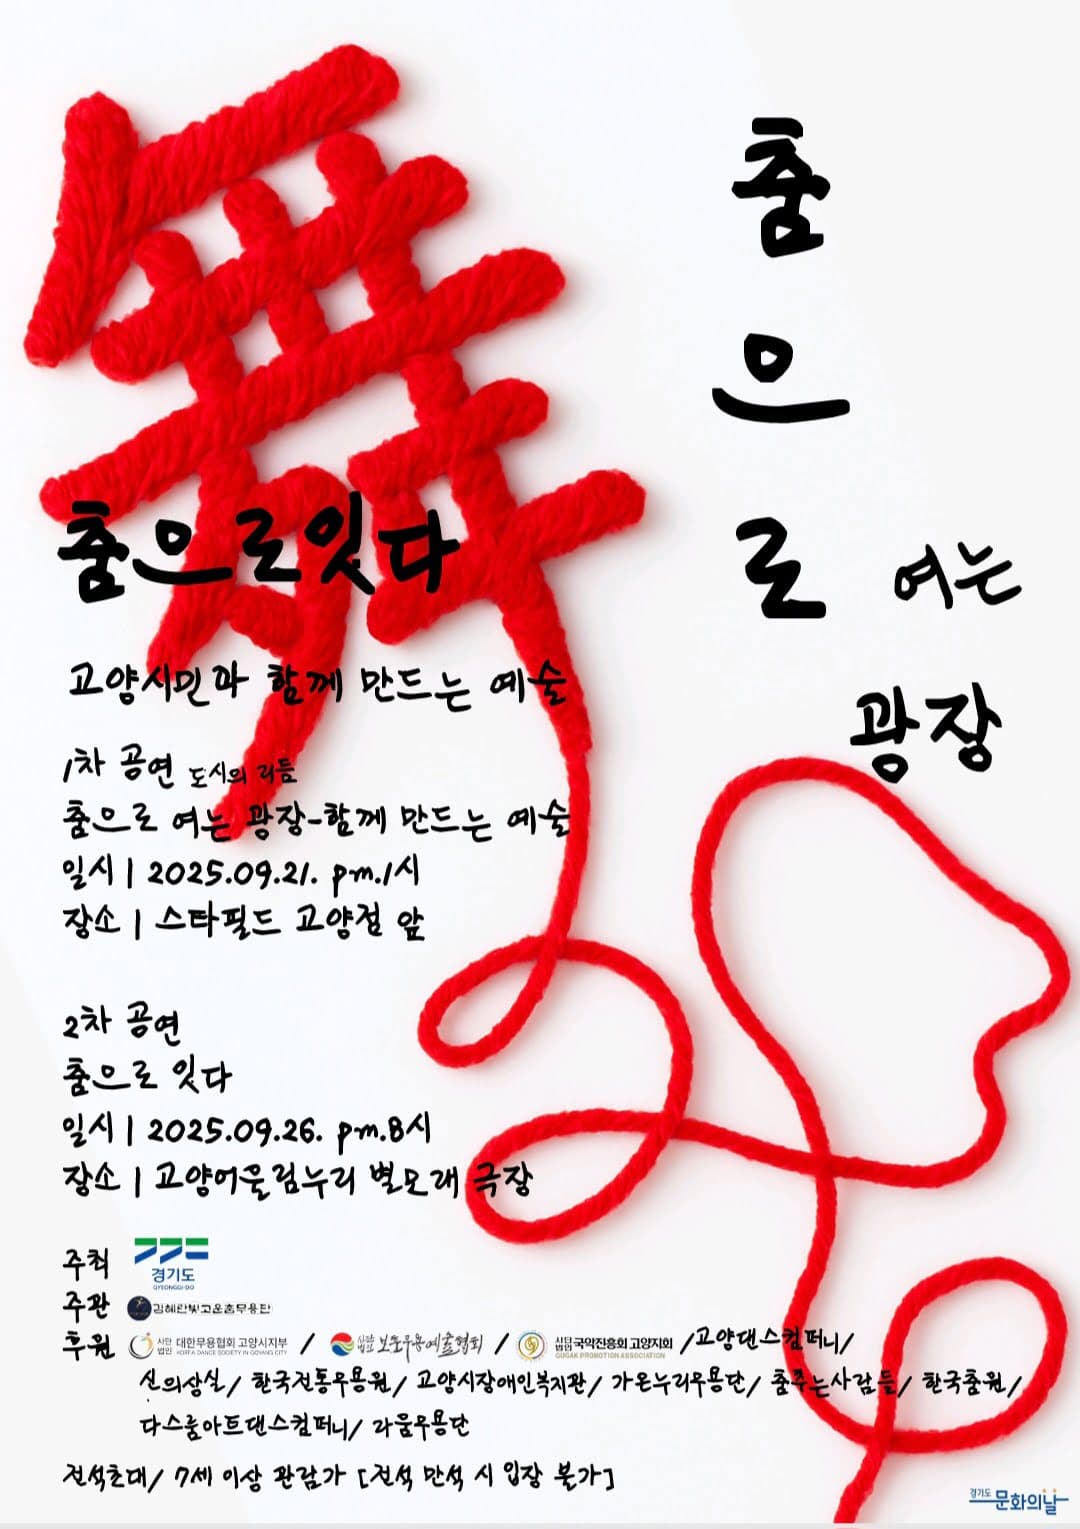 舞
춤
으
로 여는
광장
춤으로잇다
고양시민과 함께 만드는 예술
1차 공연 도시의 리듬
춤으로 여는 광장-함께 만드는 예술
일시 | 2025.09.21. pm.1시
장소 | 스타필드 고양점 앞
2차 공연
춤으로 잇다
일시 | 2025.09.26. pm.8시
장소 | 고양어울림누리 별모래 극장
주최 경기도 GYEONGGI-DO
주관 김혜란빛고운춤무용단
후원 사단법인 대한무용협회 고양시지부 KOREA DANCE SOCIETY IN GOYANG CITY / 사단법인 보훈무용예술협회 / 사단법인 국악진흥회 고양지회 GUGAK PROMOTION ASSOCIATION /고양댄스컴퍼니/
신의상실/ 한국전통무용원/ 고양시장애인복지관/ 가온누리무용단/ 춤추는사람들/ 한국춤원/
다스름아트댄스컴퍼니/ 라움무용단
전석초대/ 7세 이상 관람가 [전석 만석 시 입장 불가]
경기도 문화의날